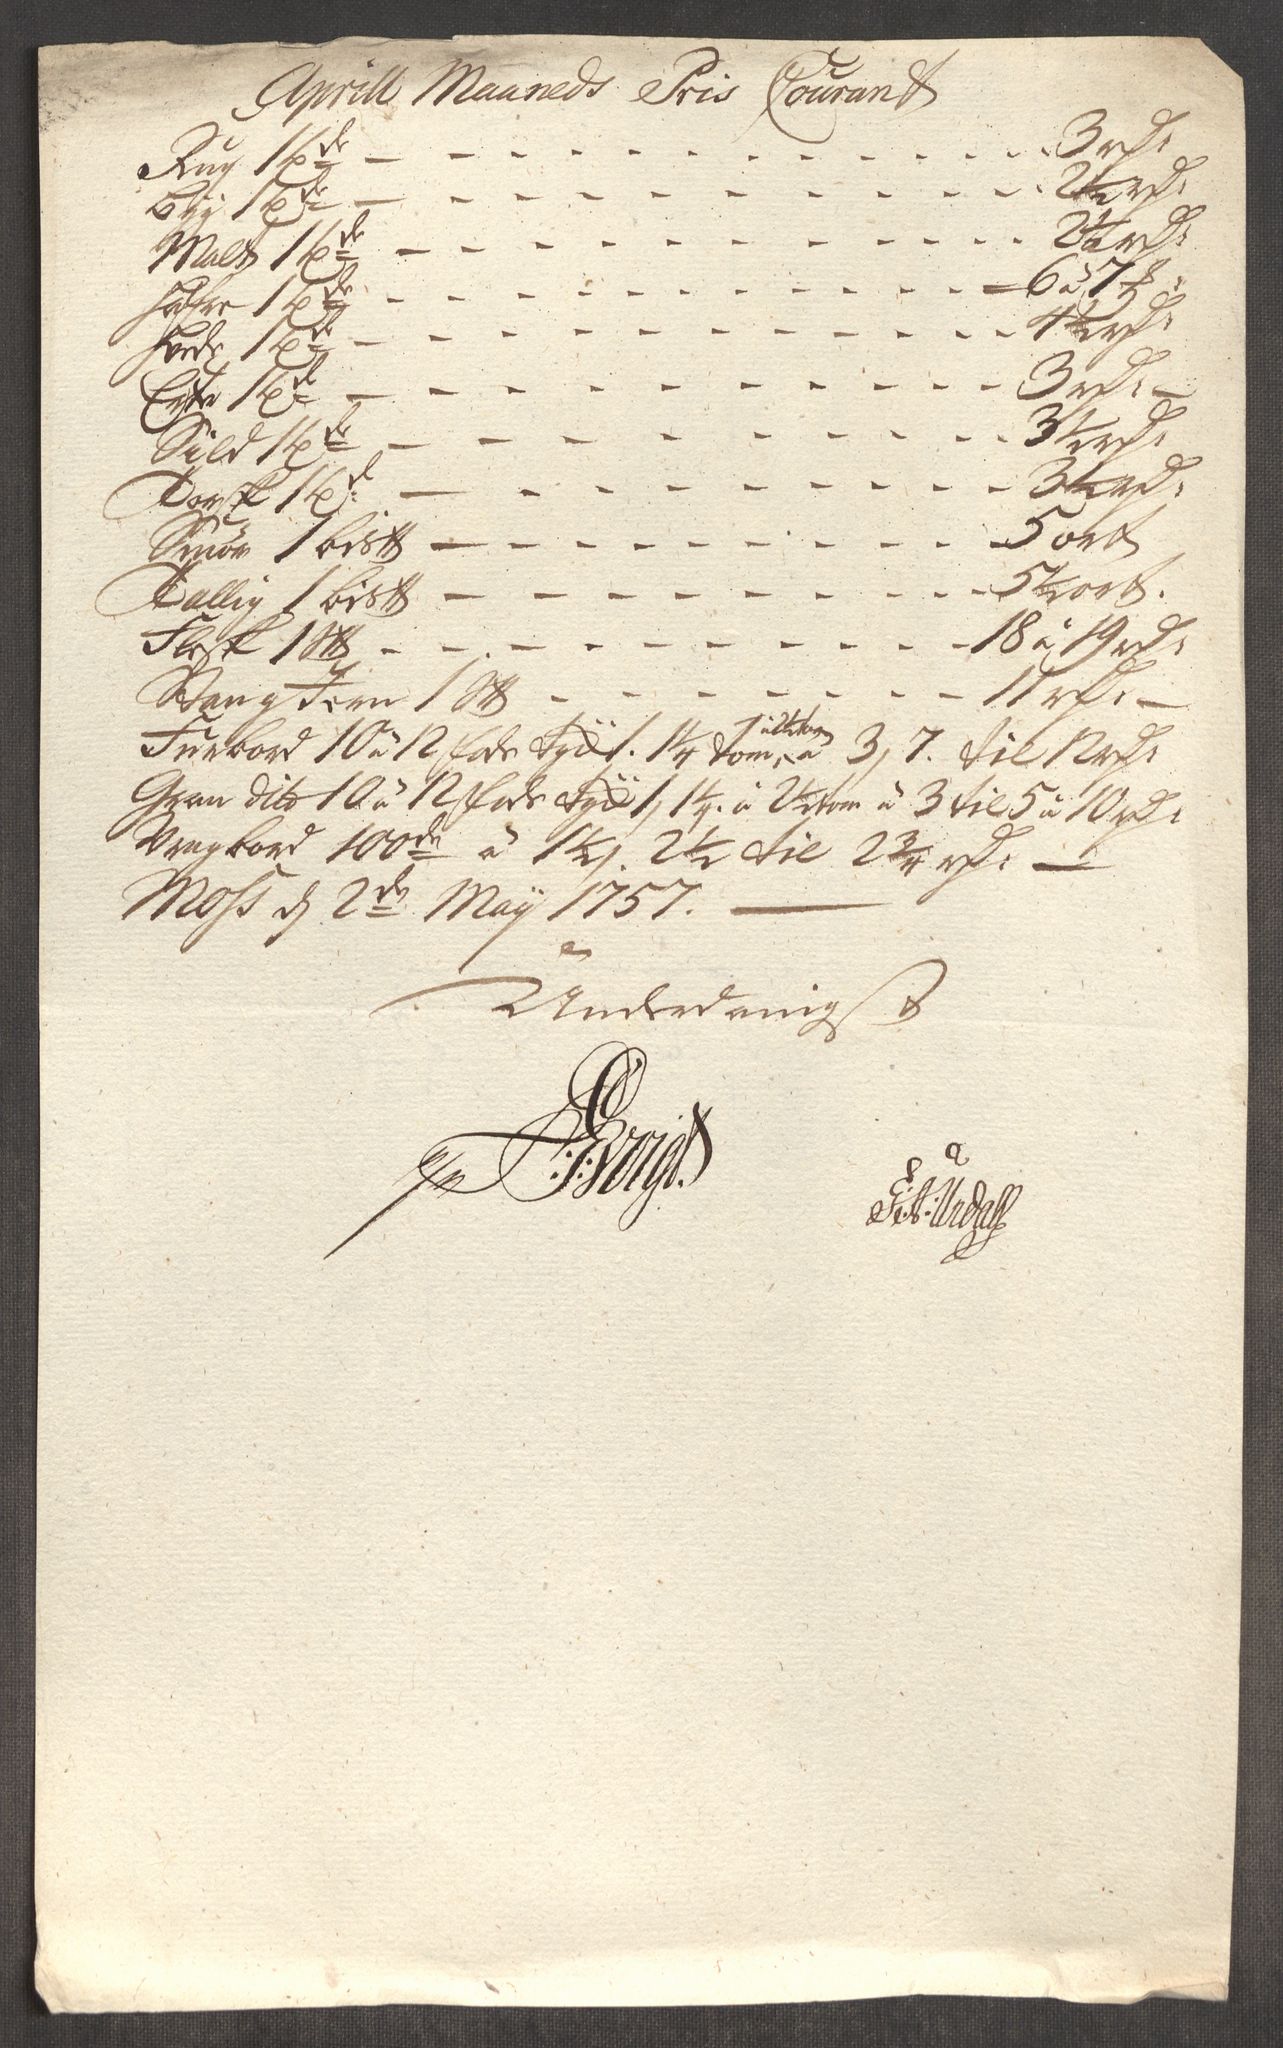 Aprill Maaneds Pris Courant
Rug 1 td 3 rd:
Byg 1 td 2½ rd:
Malt 1 td 2½ rd:
Hafre 1 td 6 à 7
Hvede 1 td 4½ rd:
Erter 1 td 3 rd:
Sild 1 td 3½ rd:
Torsk 1 td 3½ rd:
Smör 1 bis℔ 5 ort
Tallig 1 bis℔ 5½ ort.
Flesk 1 S℔ 18 à 19 rd:
Stang Jern 1 S℔ 11 rd:
Furbord 10 à 12 fods tyk 1. 1¼ tom, à 2½ tom à 3, 7. til 12 rd:
Gran dito 10 à 12 fods tyk 1, 1¼. à 2½ tom à 3 til 5 à 10 rd:
Vragbord 100de à 1½, 2½ til 2¾ rd:
Moss d 2de Maÿ 1757.
Underdanigst
Voigt.
Urdall